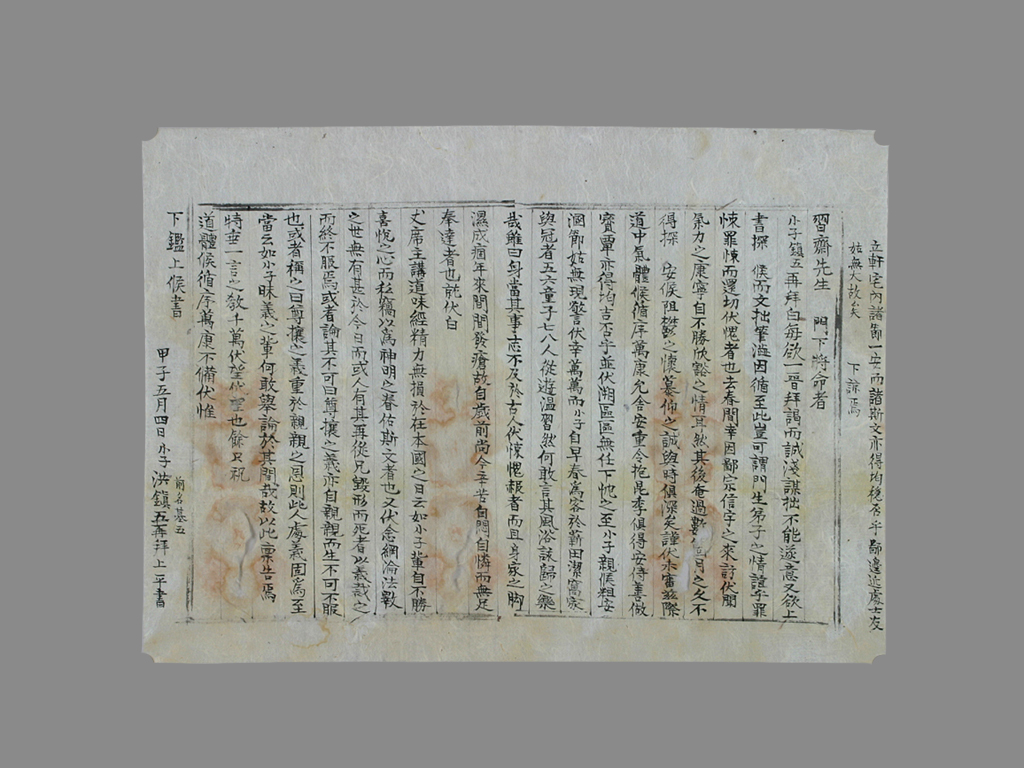 習齋先生 門下將命者
小子鎭五再拜白每欲一晉拜謁而誠淺謀拙不能遂意又欲上
書探 候而文拙筆澁因循至此豈可謂門生弟子之情誼乎罪
悚罪悚而還切伏愧者也去春間幸因鄙宗信字之來討伏聞
氣力之康寧自不勝欣豁之情耳然其後奄過數 月之久不
得探 安候阻 之懷慕仰之誠與時俱深矣謹伏未審玆際
道中氣體候循序萬康允舍安重令抱昆季俱得安侍善做
寶覃亦得均吉否乎並伏溯區區無任下忱之至小子親候粗安
渾節姑無現警伏幸萬萬而小子自早春爲客於薪田潔 家
與冠者五六童子七八人從遊溫習然何敢言其風浴詠歸之樂
哉雖曰身當其事志不及於古人伏悚愧赧者而且身家之脚
濕成痼年來間間發瘡故自歲前尙今辛苦自悶自憐而無足
奉達者也就伏白
丈席主講道味經精力無損於在本國之日云如小子輩自不勝
喜悅之心而私竊以爲神明之眷佑斯文者也又伏念綱淪法斁
之世無有甚於今日而或人有其再從兄 形而死者以義裁之
而終不服焉或者論其不可曰尊攘之義亦自親親而生不可不服
也或者稱之曰尊攘之義重於親親之恩則此人處義固爲至
當云如小子昧義之輩何敢擧論於其間哉故以此稟告焉
特垂一言之敎千萬伏望伏望也餘只祝
道體候循序萬康不備伏惟
下鑑上候書
甲子五月四日小子洪鎭五再拜上平書
前名基五
立軒宅內諸節一安而諸斯文亦得均穩否乎鄙邊近處士友
姑無大故介矣 下諒焉